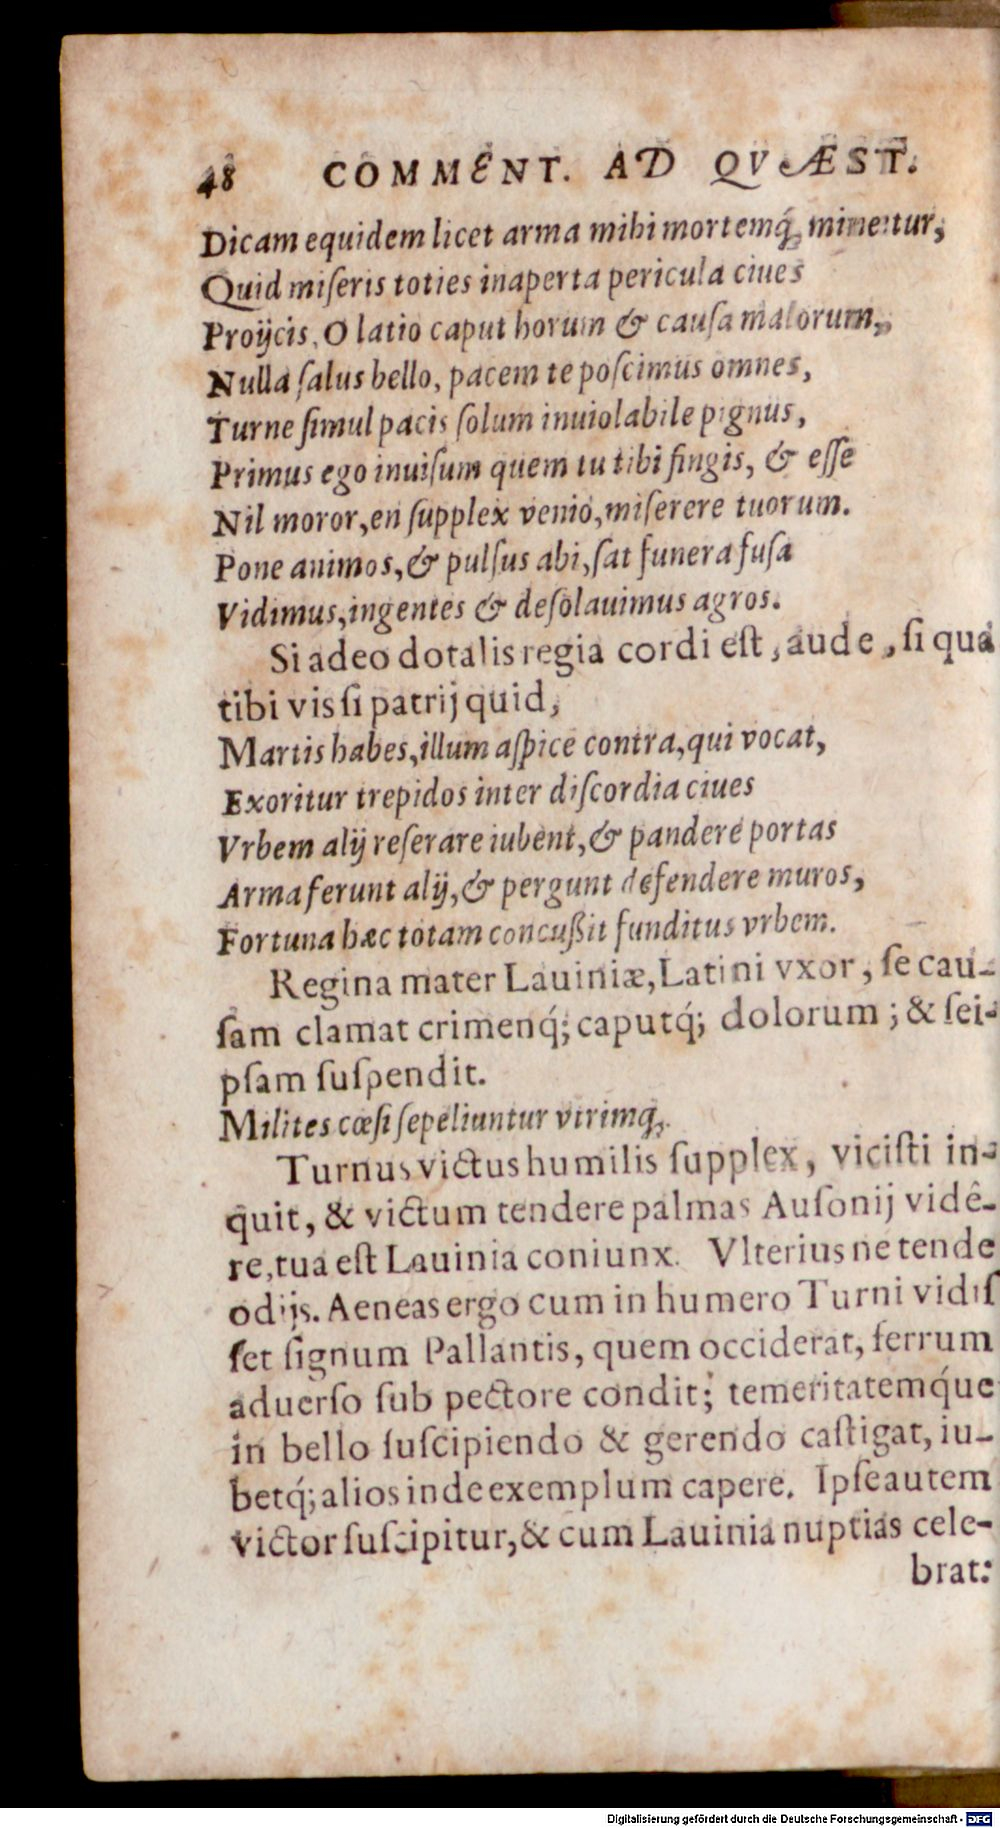 48 COMMENT. AD QVÆST.
Dicam equidem licet arma mihi mortemq́, minetur,
Quid miſeris toties inaperta pericula ciues
Proijcis, O latio caput horum & cauſa malorum,
Nulla ſalus bello, pacem te poſcimus omnes,
Turne ſimul pacis ſolum inuiolabile pignus,
Primus ego inuiſum quem tu tibi fingis, & eſſe
Nil moror, en ſupplex venio, miſerere tuorum.
Pone animos, & pulſus abi, ſat funera fuſa
Vidimus, ingentes & deſolauimus agros.
Si adeo dotalis regia cordi eſt, aude, ſi qua
tibi vis ſi patrij quid,
Martis habes, illum aſpice contra, qui vocat,
Exoritur trepidos inter diſcordia ciues
Vrbem alij reſerare iubent, & pandere portas
Arma ferunt alij, & pergunt defendere muros,
Fortuna hæc totam concußit funditus vrbem.
Regina mater Lauiniæ, Latini vxor, ſe cau-
ſam clamat crimenq́; caputq́; dolorum; & ſei-
pſam ſuſpendit.
Milites cæſi ſepeliuntur vtrimq,.
Turnus victus humilis ſupplex, viciſti in-
quit, & victum tendere palmas Auſonij vidê-
re, tua eſt Lauinia coniunx. Vlterius ne tende
odijs. Aeneas ergo cum in humero Turni vidiſ
ſet ſignum Pallantis, quem occiderat, ferrum
aduerſo ſub pectore condit; temeritatemq́ue
in bello ſuſcipiendo & gerendo caſtigat, iu-
betq́; alios inde exemplum capere. Ipſe autem
victor ſuſcipitur, & cum Lauinia nuptias cele-
brat:
Digitalisierung gefördert durch die Deutsche Forschungsgemeinschaft - DFG